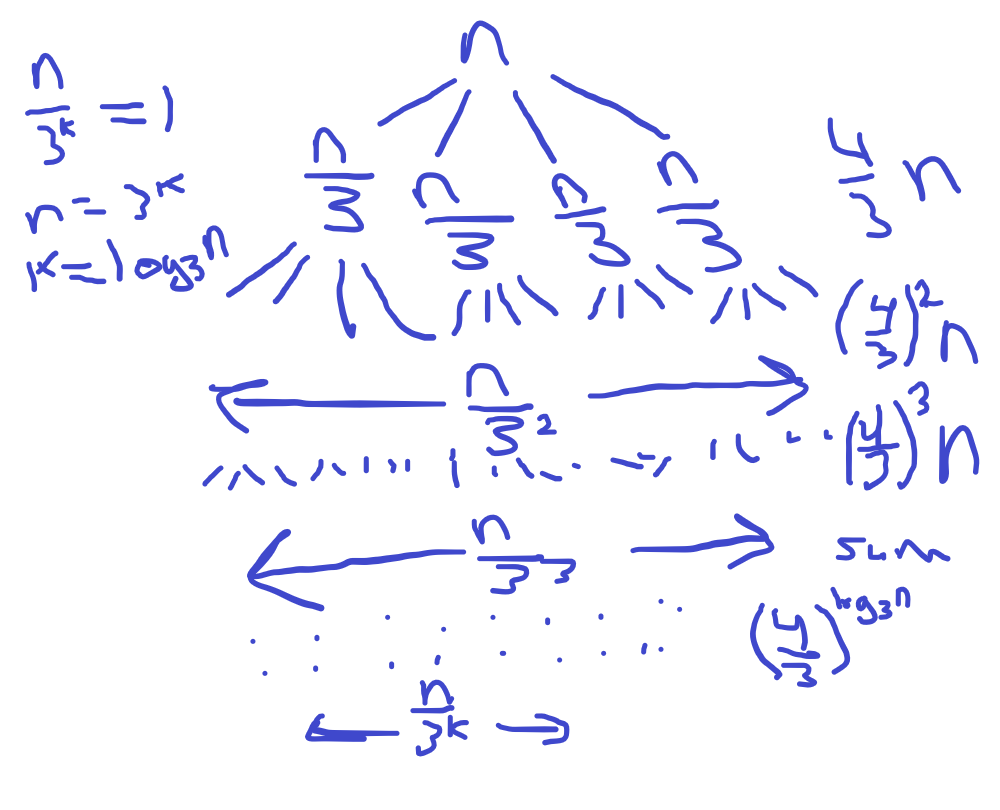 n
n/3^k = 1
n = 3^k
k = log_3 n
n/3 n/3 n/3 n/3
4/3 n
(4/3)^2 n
n/3^2
(4/3)^3 n
n/3^3
sum
(4/3)^{log_3 n}
n/3^k